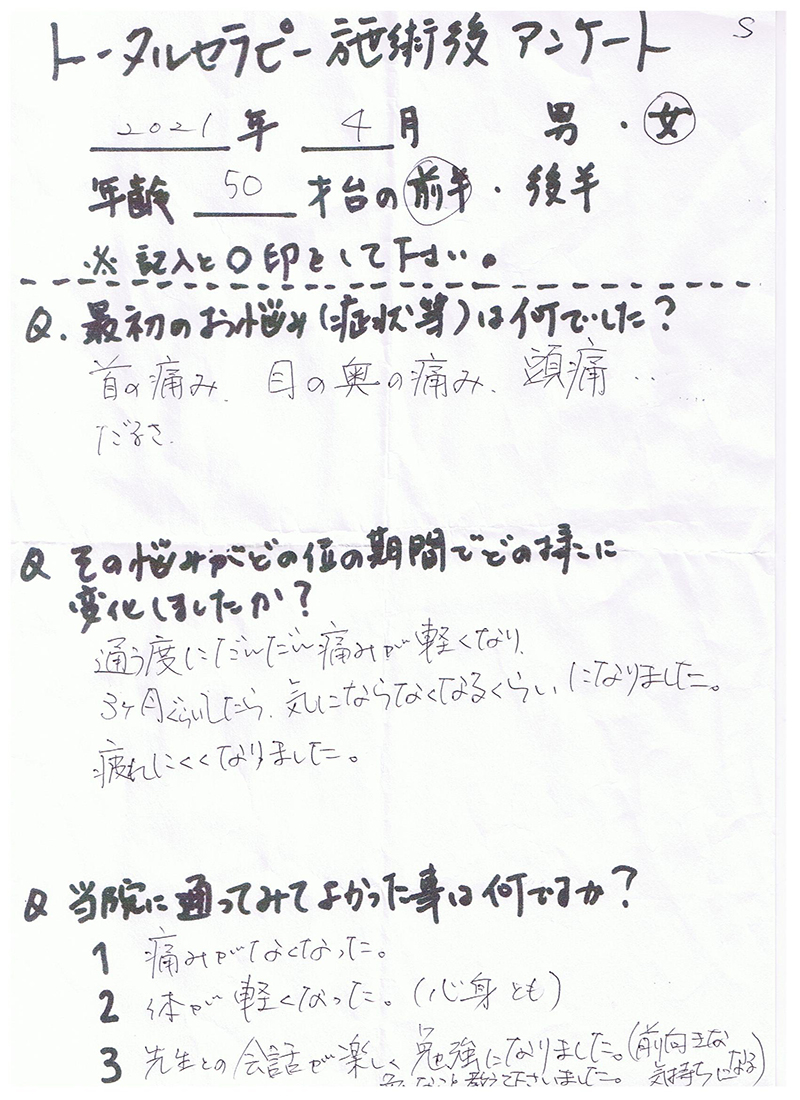 S
トータルセラピー施術後 アンケート
2021 年 4 月 男・女
年齢 50 才台の前半・後半
※ 記入と〇印をして下さい。
Q. 最初のお悩み(症状等)は何でした?
首の痛み、目の奥の痛み、頭痛‥
だるさ.
Q その悩みがどの位の期間でどの様に
変化しましたか?
通う度にだんだん痛みが軽くなり、
3ヶ月ぐらいしたら、気にならなくなるくらいになりました。
疲れにくくなりました。
Q 当院に通ってみてよかった事は何ですか?
1 痛みがなくなった。
2 体が軽くなった。(心身とも)
3 先生との会話が楽しく勉強になりました。(前向きな
気持ちになる)
教えて下さいました。